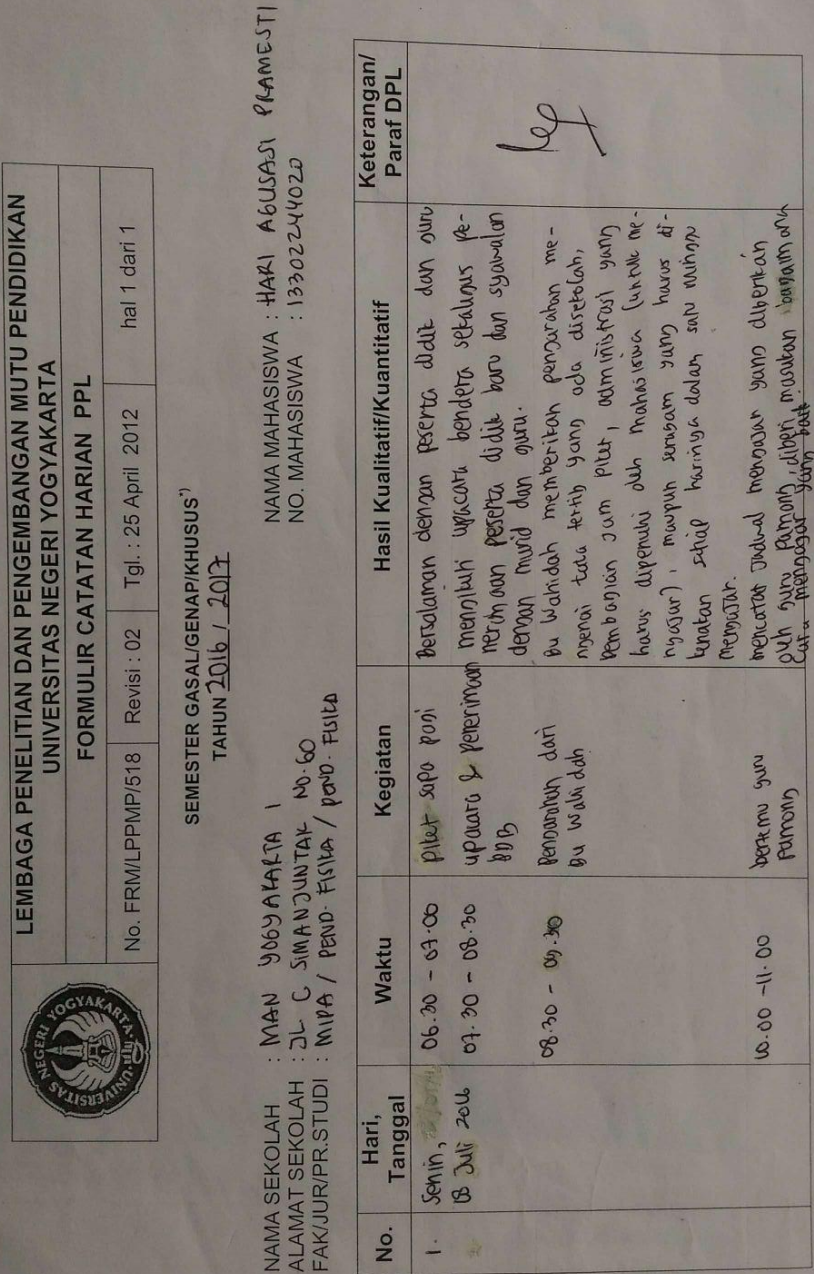 LEMBAGA PENELITIAN DAN PENGEMBANGAN MUTU PENDIDIKAN
UNIVERSITAS NEGERI YOGYAKARTA
FORMULIR CATATAN HARIAN PPL
No. FRM/LPPMP/518 Revisi : 02 Tgl. : 25 April 2012 hal 1 dari 1
UNIVERSITAS NEGERI YOGYAKARTA
SEMESTER GASAL/GENAP/KHUSUS*)
TAHUN 2016 / 2017
NAMA SEKOLAH : MAN YOGYAKARTA 1
ALAMAT SEKOLAH : JL C SIMANJUNTAK NO. 60
FAK/JUR/PR.STUDI : MIPA / PEND. FISIKA / PEND. FISIKA
NAMA MAHASISWA : HARI AGUSASI PRAMESTI
NO. MAHASISWA : 13302244020
No. Hari, Tanggal Waktu Kegiatan Hasil Kualitatif/Kuantitatif Keterangan/ Paraf DPL
1. Senin,
18 Juli 2016
06.30 - 07.00 piket sapa pagi
Bersalaman dengan peserta didik dan guru
07.30 - 08.30 upacara & penerimaan
PDB
mengikuti upacara bendera sekaligus pe-
nerimaan peserta didik baru dan syawalan
dengan murid dan guru.
08.30 - 09.30 Pengarahan dari
Bu Wahidah
Bu Wahidah memberikan pengarahan me-
ngenai tata tertib yang ada disekolah,
pembagian jam piket, administrasi yang
harus dipenuhi oleh mahasiswa (untuk me-
ngajar), maupun seragam yang harus di-
kenakan setiap harinya dalam satu minggu
mengajar.
10.00 - 11.00 bertemu guru
pamong
mencatat jadwal mengajar yang diberikan
oleh guru pamong, diberi masukan bagaimana
cara mengajar yang baik.